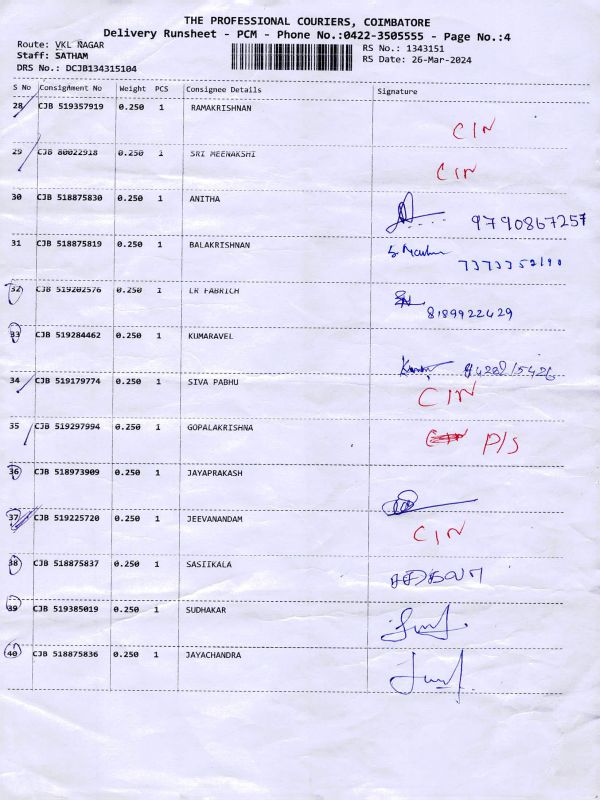 THE PROFESSIONAL COURIERS, COIMBATORE
Delivery Runsheet - PCM - Phone No.:0422-3505555 - Page No.:4
Route: VKL NAGAR
Staff: SATHAM
DRS No.: DCJB134315104
RS No.: 1343151
RS Date: 26-Mar-2024
S No Consignment No Weight PCS Consignee Details Signature
28 CJB 519357919 0.250 1 RAMAKRISHNAN
CIN
29 CJB 80022918 0.250 1 SRI MEENAKSHI
CIN
30 CJB 518875830 0.250 1 ANITHA
9790867257
31 CJB 518875819 0.250 1 BALAKRISHNAN
7373352190
32 CJB 519202576 0.250 1 LR FABRICH
8189922429
33 CJB 519284462 0.250 1 KUMARAVEL
34 CJB 519179774 0.250 1 SIVA PABHU
CIN
35 CJB 519297994 0.250 1 GOPALAKRISHNA
P/S
36 CJB 518973909 0.250 1 JAYAPRAKASH
37 CJB 519225720 0.250 1 JEEVANANDAM
CIN
38 CJB 518875837 0.250 1 SASIIKALA
39 CJB 519385019 0.250 1 SUDHAKAR
40 CJB 518875836 0.250 1 JAYACHANDRA